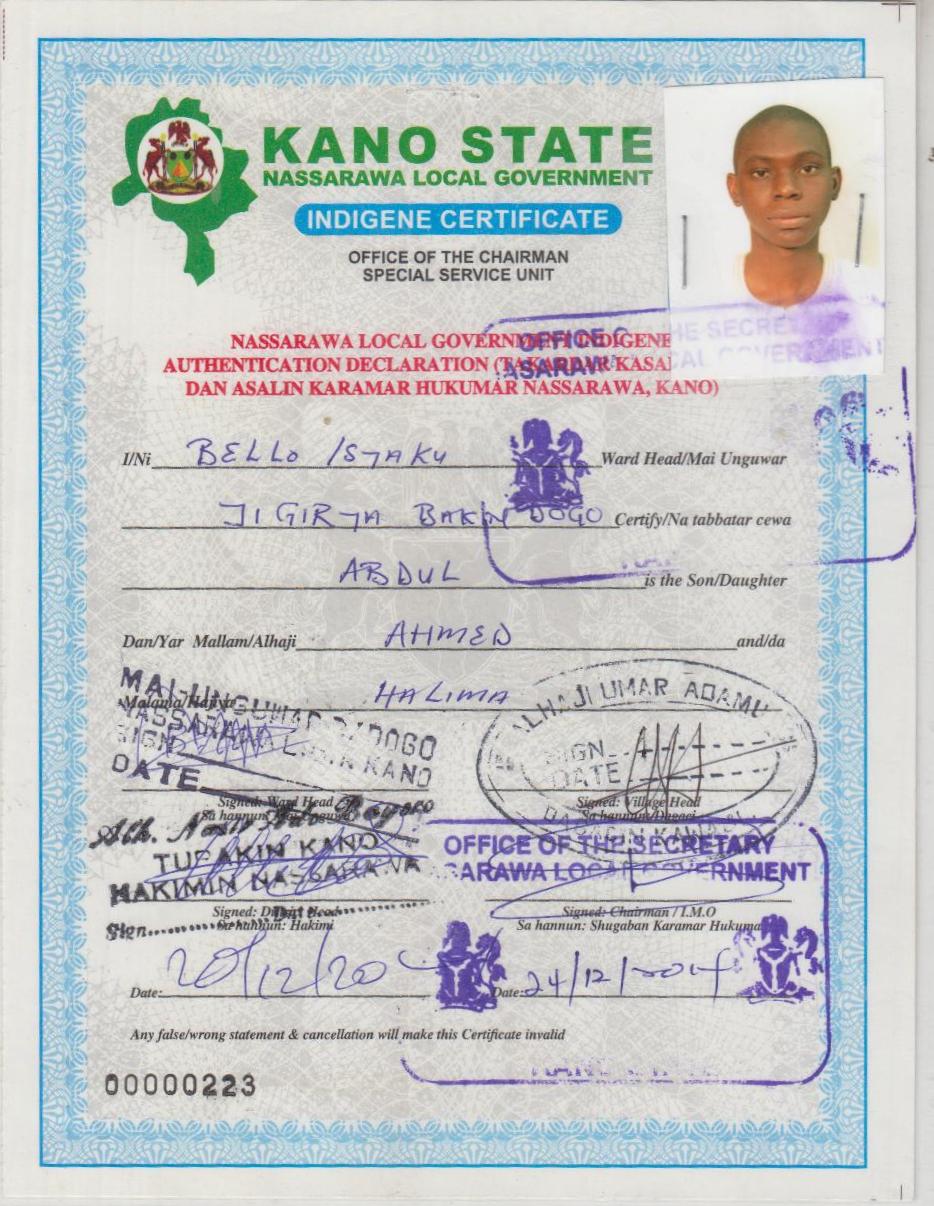 KANO STATE
NASSARAWA LOCAL GOVERNMENT
INDIGENE CERTIFICATE
OFFICE OF THE CHAIRMAN
SPECIAL SERVICE UNIT
NASSARAWA LOCAL GOVERNMENT INDIGENE
AUTHENTICATION DECLARATION (TAKARDAR KASA
DAN ASALIN KARAMAR HUKUMAR NASSARAWA, KANO)
OFFICE THE SECRE
ASARAWA LOCAL GOVERNMENT
I/Ni BELLO ISYAKU Ward Head/Mai Unguwar
JIGIRYA BAKIN DOGO Certify/Na tabbatar cewa
ABDUL is the Son/Daughter
Dan/Yar Mallam/Alhaji AHMED and/da
Malama/Hajiya HALIMA
MAI-UNGUWAR DOGO
NASSARAWA KANO
SIGN
DATE
ALHAJI UMAR ADAMU
SIGN
DATE
Signed: Ward Head
Sa hannun: Mai Unguwa
Signed: Village Head
Sa hannun: Dagaci
Alh. Bayero
TURAKIN KANO
HAKIMIN NASSARAWA
Sign Date
OFFICE OF THE SECRETARY
SARAWA LOCAL GOVERNMENT
Signed: District Head
Sa hannun: Hakimi
Signed: Chairman / I.M.O
Sa hannun: Shugaban Karamar Hukuma
Date: 20/12/20
Date: 24/12/2014
Any false/wrong statement & cancellation will make this Certificate invalid
00000223